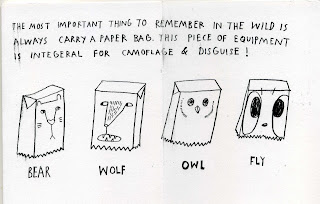 THE MOST IMPORTANT THING TO REMEMBER IN THE WILD IS
ALWAYS CARRY A PAPER BAG. THIS PIECE OF EQUIPMENT
IS INTEGERAL FOR CAMOFLAGE & DISGUISE!
BEAR WOLF OWL FLY